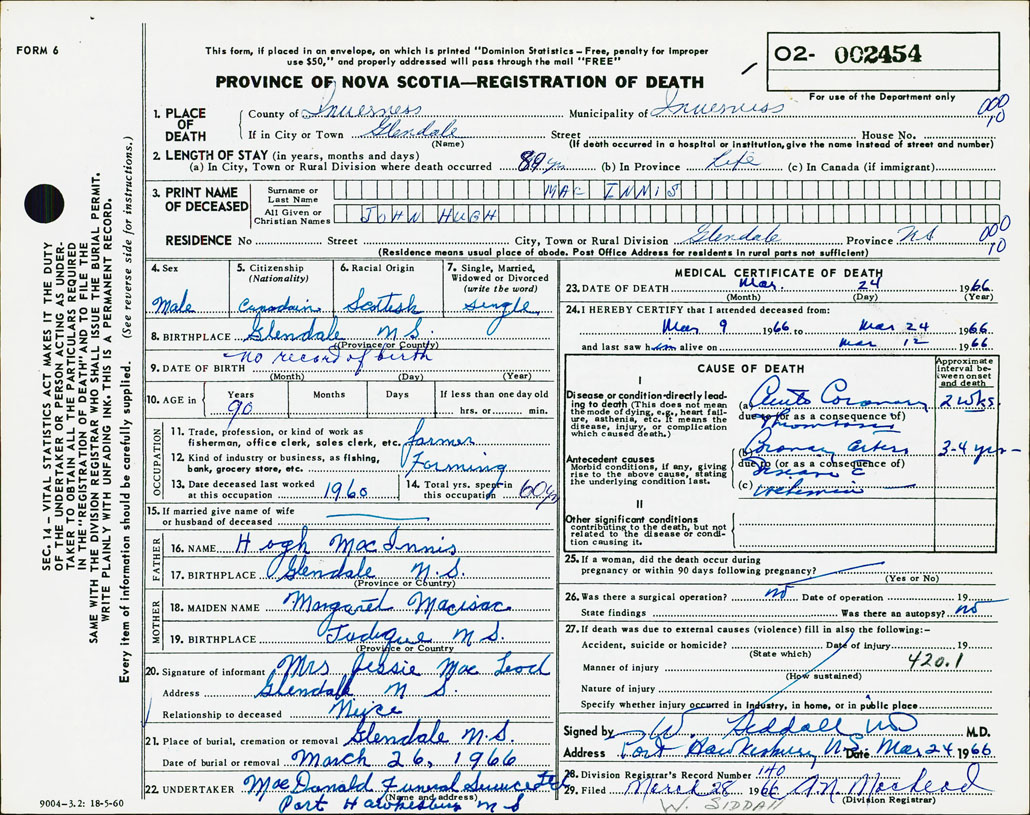 FORM 6
This form, if placed in an envelope, on which is printed "Dominion Statistics—Free, penalty for improper
use $50," and properly addressed will pass through the mail "FREE"
O2- 002454
For use of the Department only
PROVINCE OF NOVA SCOTIA—REGISTRATION OF DEATH
000
10
1. PLACE OF DEATH
County of Inverness Municipality of Inverness
If in City or Town Glendale Street House No.
(Name) (If death occurred in a hospital or institution, give the name instead of street and number)
2. LENGTH OF STAY (in years, months and days)
(a) In City, Town or Rural Division where death occurred yrs (b) In Province Life (c) In Canada (if immigrant)
3. PRINT NAME OF DECEASED
Surname or Last Name MAC INNIS
All Given or Christian Names JOHN HUGH
RESIDENCE No Street City, Town or Rural Division Glendale Province NS
000
10
(Residence means usual place of abode. Post Office Address for residents in rural parts not sufficient)
4. Sex
Male
5. Citizenship (Nationality)
Canadain
6. Racial Origin
Scotish
7. Single, Married, Widowed or Divorced (write the word)
Single
8. BIRTHPLACE Glendale N.S.
(Province or County)
9. DATE OF BIRTH no record of birth
(Month) (Day) (Year)
10. AGE in Years Months Days If less than one day old
90 hrs. or min.
OCCUPATION
11. Trade, profession, or kind of work as
fisherman, office clerk, sales clerk, etc. farmer
12. Kind of industry or business, as fishing,
bank, grocery store, etc. Farming
13. Date deceased last worked at this occupation 1960
14. Total yrs. spent in this occupation 60 yrs
15. If married give name of wife
or husband of deceased
FATHER
16. NAME Hogh MacInnis
17. BIRTHPLACE Glendale N.S.
(Province or Country)
MOTHER
18. MAIDEN NAME Margaret Macisac
19. BIRTHPLACE Judique N.S.
(Province or Country
20. Signature of informant Mrs Jessie Mac Leod
Address Glendale N S.
Relationship to deceased Niece
21. Place of burial, cremation or removal Glendale N.S.
Date of burial or removal March 26, 1966
22. UNDERTAKER MacDonald Funeral Service Ltd
(Name and address)
Port Hawkesbury N S
9004-3.2: 18-5-60
MEDICAL CERTIFICATE OF DEATH
23. DATE OF DEATH Mar. 24 1966
(Month) (Day) (Year)
24. I HEREBY CERTIFY that I attended deceased from:
Mar 9 1966 to Mar 24 1966
and last saw him alive on Mar 12 1966
CAUSE OF DEATH
Approximate interval between onset and death
I
Disease or condition directly leading to death (This does not mean the mode of dying, e.g., heart failure, asthenia, etc. It means the disease, injury, or complication which caused death.)
(a) Acute Coronary 2 wks.
due to (or as a consequence of)
Thrombosis
Antecedent causes
Morbid conditions, if any, giving rise to the above cause, stating the underlying condition last.
(b) Coronary Artery 3-4 yrs
due to (or as a consequence of)
Disease c
(c) ischemia
II
Other significant conditions
contributing to the death, but not related to the disease or condition causing it.
25. If a woman, did the death occur during
pregnancy or within 90 days following pregnancy?
(Yes or No)
26. Was there a surgical operation? no Date of operation 19
State findings Was there an autopsy? no
27. If death was due to external causes (violence) fill in also the following:-
Accident, suicide or homicide? Date of injury 19
(State which)
420.1
Manner of injury
(How sustained)
Nature of injury
Specify whether injury occurred in industry, in home, or in public place
Signed by W. Siddall MD M.D.
Address Port Hawkesbury N.S. Date Mar 24 1966
28. Division Registrar's Record Number 140
29. Filed March 28 1966 A.N. Macleod
(Division Registrar)
W. SIDDALL
SEC. 14 – VITAL STATISTICS ACT MAKES IT THE DUTY
OF THE UNDERTAKER OR PERSON ACTING AS UNDER-
TAKER TO OBTAIN ALL THE PARTICULARS REQUIRED
IN THE "REGISTRATION OF DEATH" AND TO FILE THE
SAME WITH THE DIVISION REGISTRAR WHO SHALL ISSUE THE BURIAL PERMIT.
WRITE PLAINLY WITH UNFADING INK. THIS IS A PERMANENT RECORD.
Every item of information should be carefully supplied. (See reverse side for instructions.)